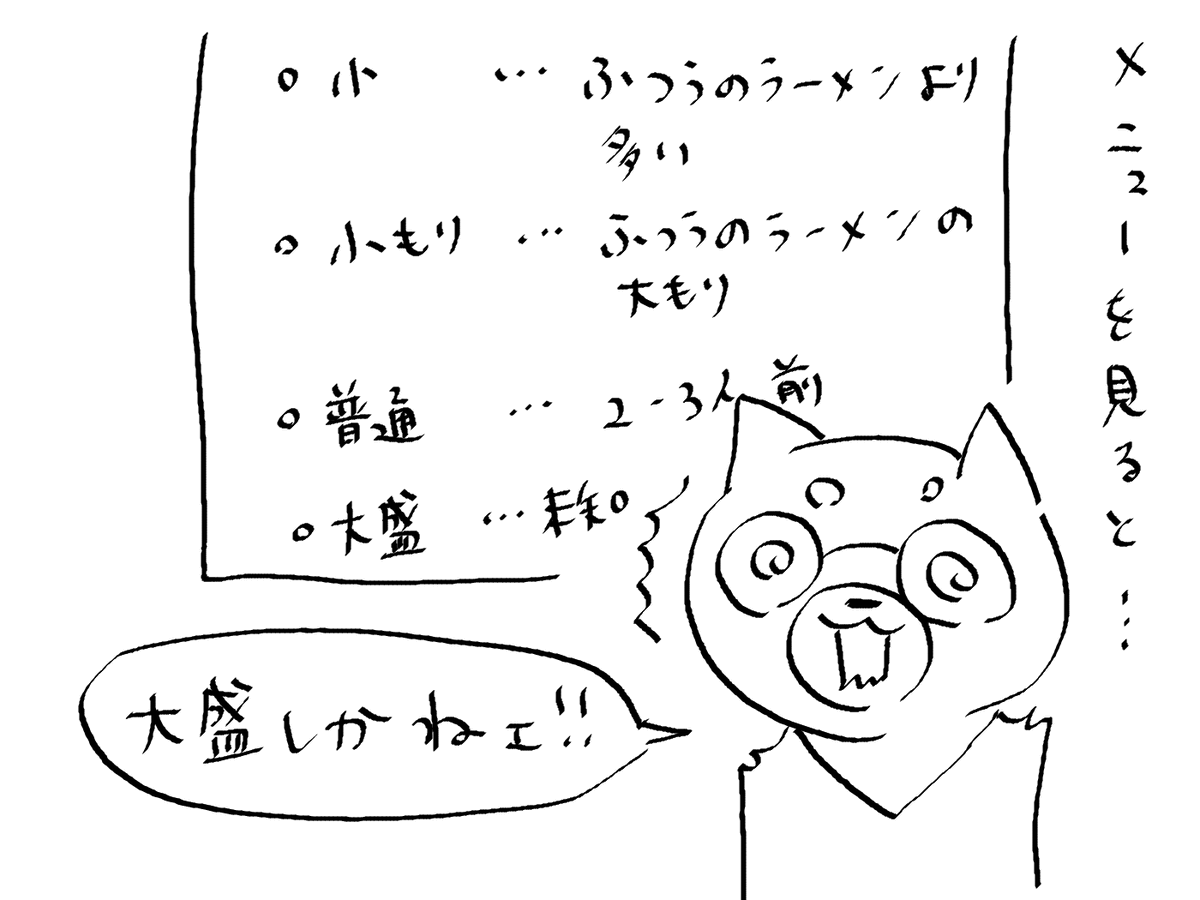 メニューを見ると…
○小 … ふつうのラーメンより
多い
○小もり … ふつうのラーメンの
大もり
○普通 … 2-3人前
○大盛 … 未知。
大盛しかねェ!!